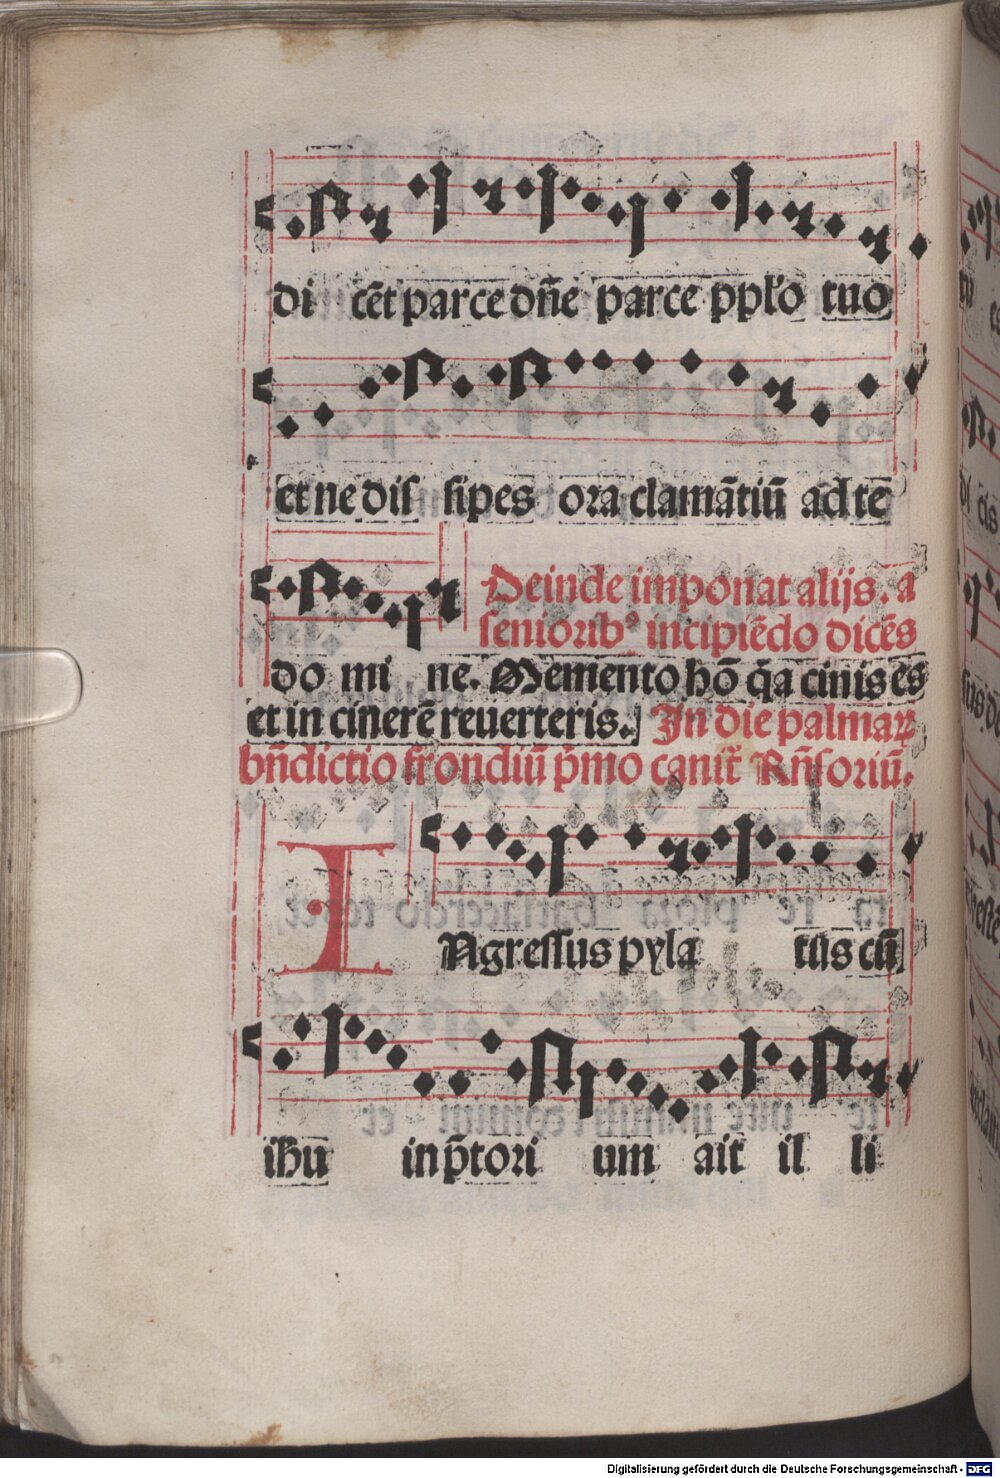 di cēt parce dn̄e parce ppl'o tuo
et ne dis sipes ora clamātiū ad te
Deinde imponat alijs. a
seniorib⁹ incipiēdo dicēs
do mi ne. Memento hō q̄a cinis es
et in cinerē reuerteris. In die palmaꝝ
bn̄dictio frondiū p̄mo canit̄ Rn̄soriū.
INgressus pyla tus cū
ihū in p̄tori um ait il li
Digitalisierung gefördert durch die Deutsche Forschungsgemeinschaft - DFG